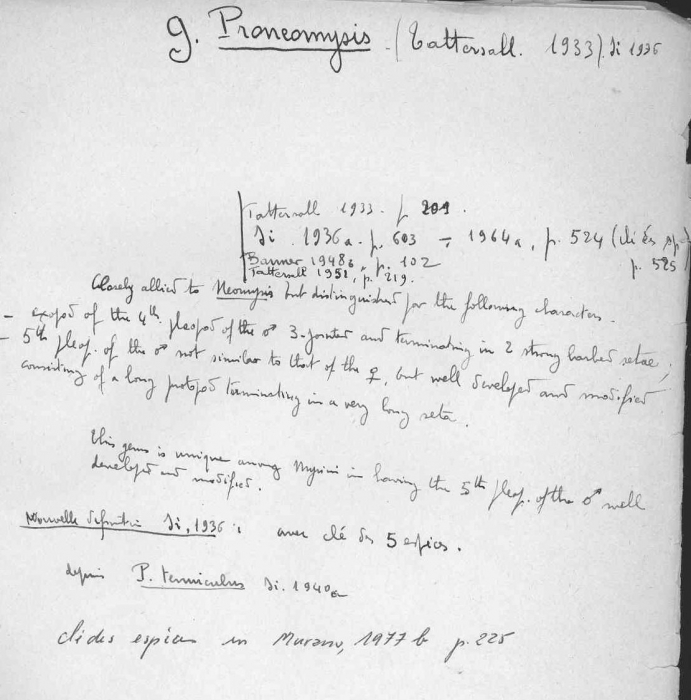 g. Proneomysis (Tattersall. 1933). Ii 1936
Tattersall 1933. p 201.
Ii. 1936a. p. 603 - 1964a, p. 524 (clé és sp.
p. 525
Banner 1948b, p. 102
Tattersall 1951, p. 219.
Closely allied to Neomysis but distinguished for the following characters.
- exopod of the 4th pleopod of the ♂ 3-jointed and terminating in 2 strong barbed setae;
- 5th pleop. of the ♂ not similar to that of the ♀, but well developed and modified
consisting of a long protopod terminating in a very long seta.
This genus is unique among Mysini in having the 5th pleop. of the ♂ well
developed and modified.
Nouvelle définition Ii, 1936: avec clé des 5 espèces.
depuis P. Ii. 1940a
clé des espèces in Murano, 1977b p. 225